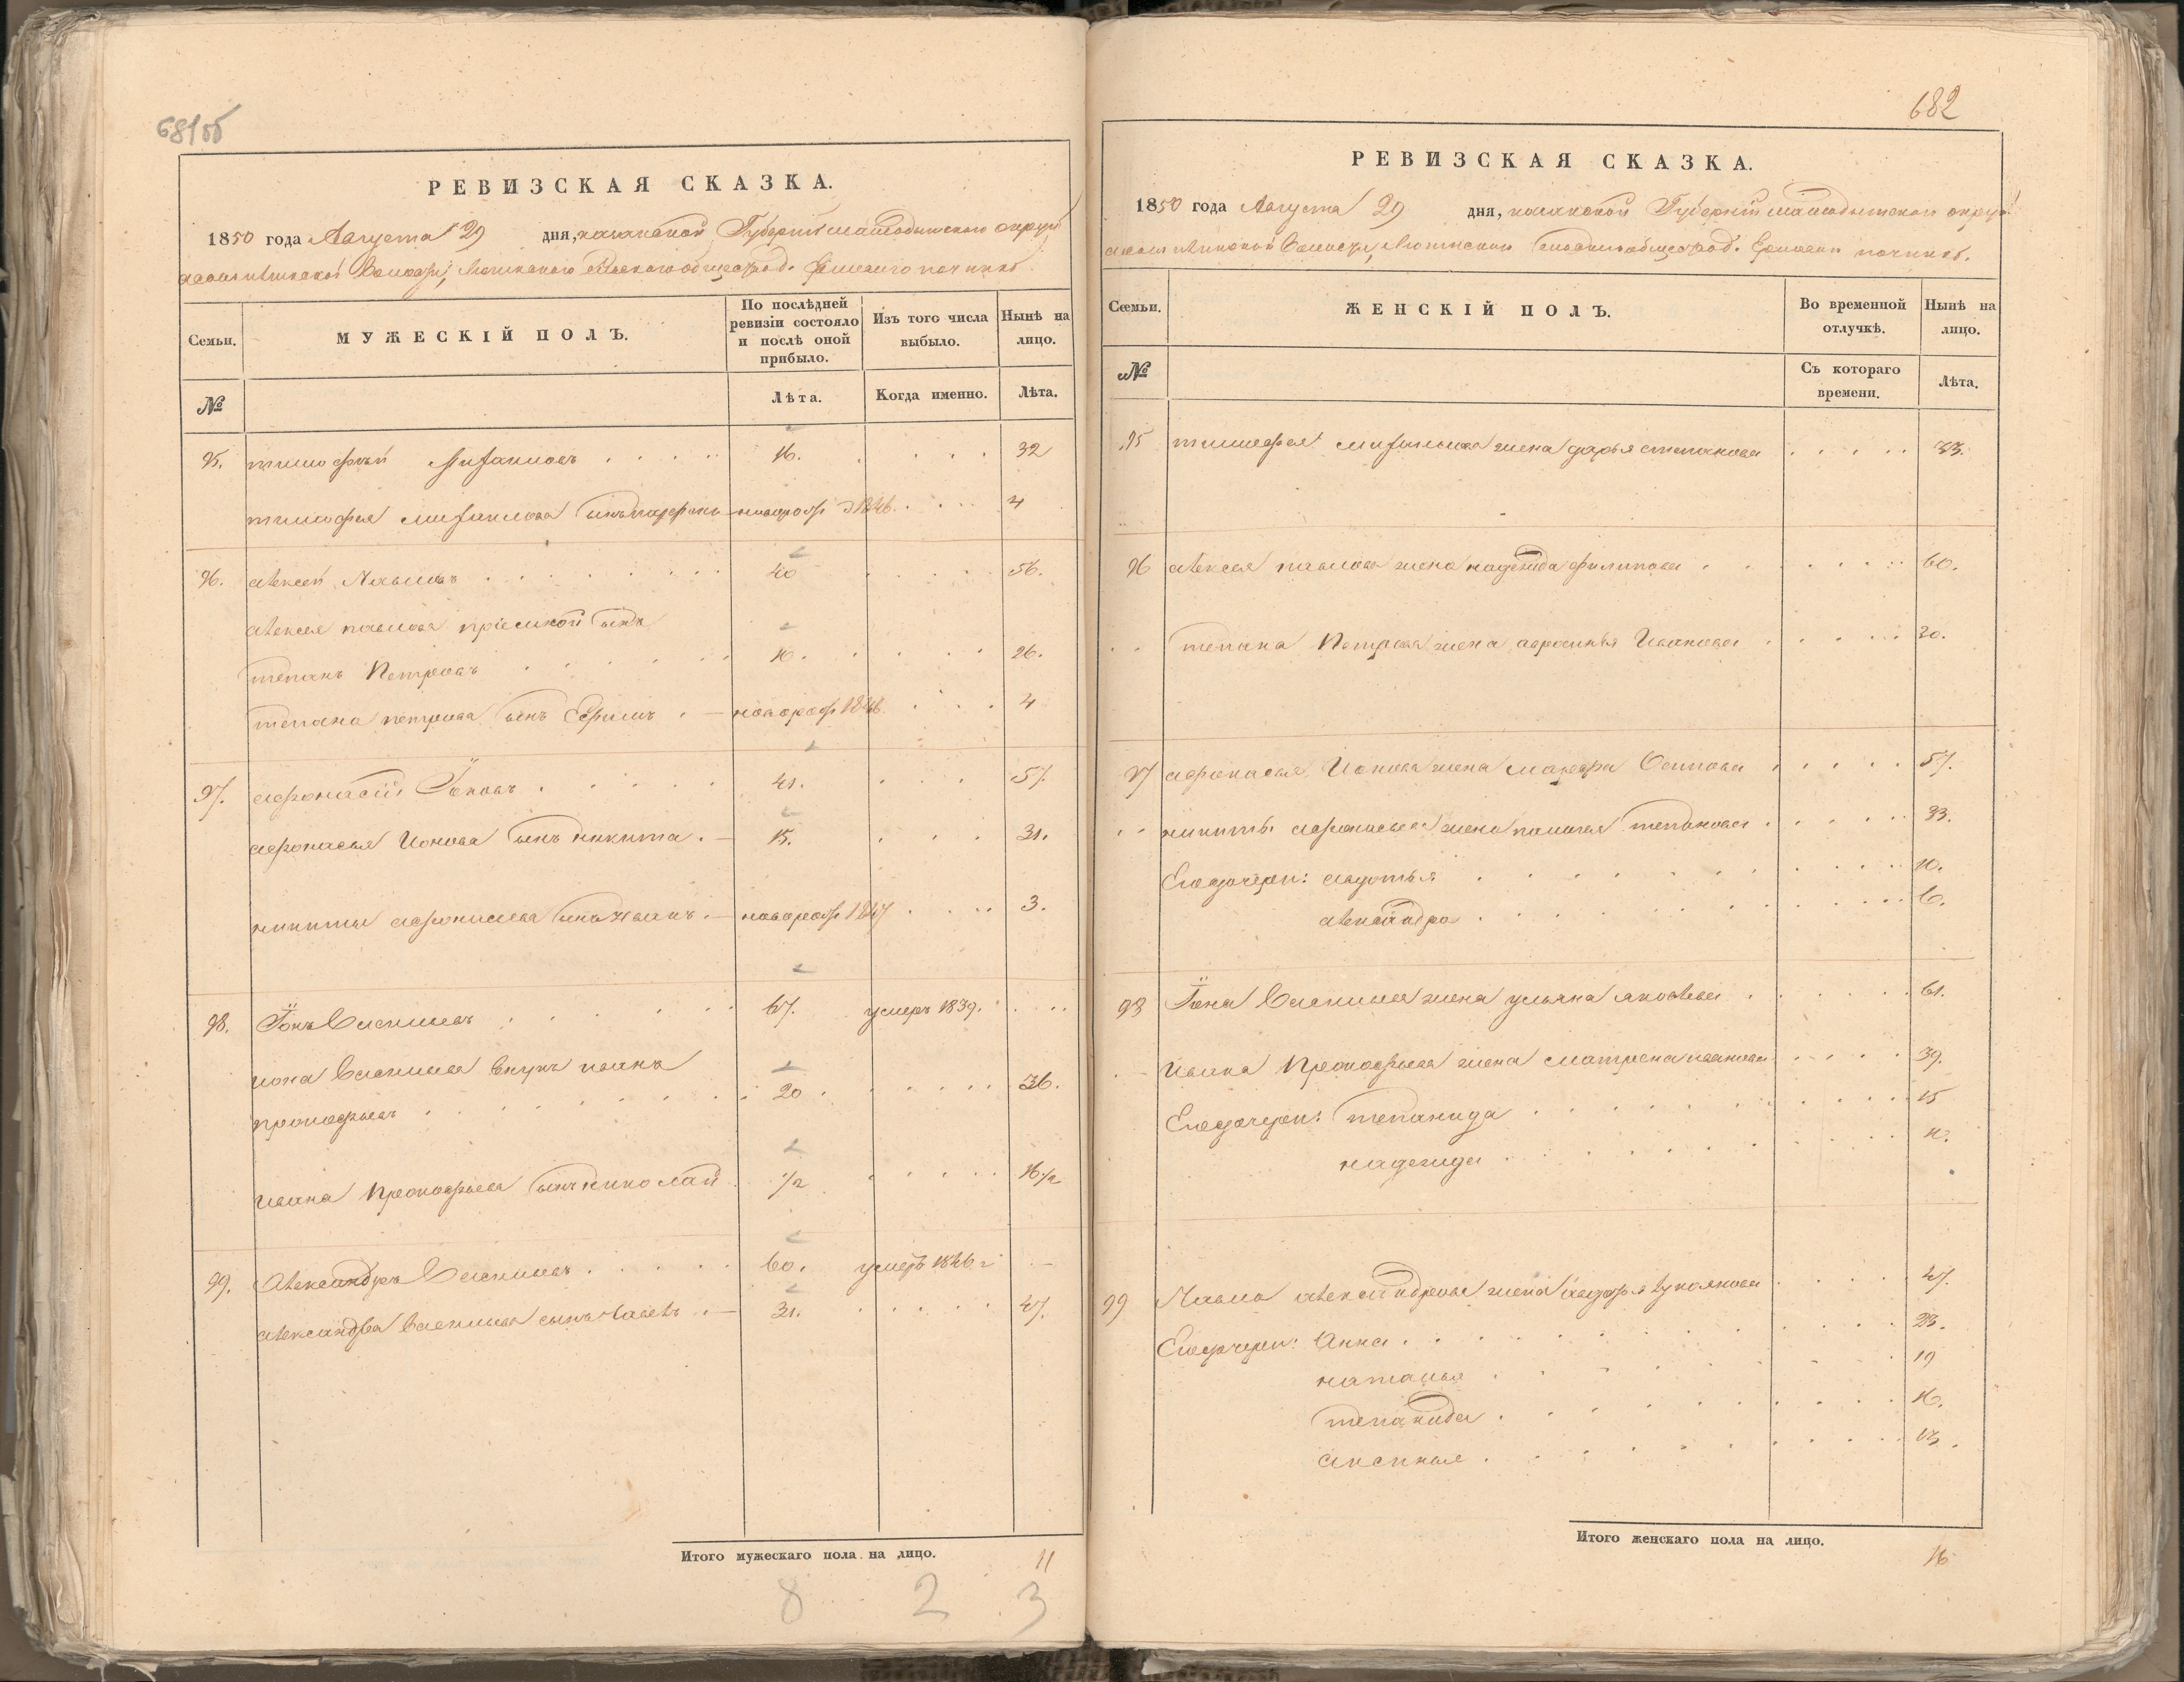 681об
РЕВИЗСКАЯ СКАЗКА.
1850 года Августа 29 дня, казанской Губернии мамадышскаго округа
волости, общества д. починка
Семьи. МУЖЕСКІЙ ПОЛЪ. По послѣдней ревизіи состояло и послѣ оной прибыло. Изъ того числа выбыло. Нынѣ на лицо.
№ Лѣта. Когда именно. Лѣта.
95. тимофѣй Михаиловъ 16. 32
тимофея михаилова сынъ новорож 1846. 4
96. алексей Павловъ 40 56.
алексея павлова пріемной сынъ
степанъ Петровъ 10. 26.
степана петрова сынъ Ефимъ новорож 1846 4
97. афонасій Іоновъ 41. 57
афонасья Ионова сынъ никита 15. 31.
никиты афонасьева сынъ иванъ новорож 1847 3.
98. Іонъ Василиевъ 67. умеръ 1839.
иона Василиева внукъ иванъ
прокофьевъ 20 36.
ивана Прокофьева сынъ николай 1/2 16 1/2
99. Александръ Василиевъ 60. умеръ 1846 г
александра Василиева сынъ павелъ 31. 47.
Итого мужескаго пола на лицо. 11
8 2 3
682
РЕВИЗСКАЯ СКАЗКА.
1850 года Августа 29 дня, казанской Губерніи мамадышскаго округа
волости, общества д. починка.
Семьи. ЖЕНСКІЙ ПОЛЪ. Во временной отлучкѣ. Нынѣ на лицо.
№ Съ котораго времени. Лѣта.
95 тимофея михаилова жена дарья степанова 33.
96 алексея павлова жена надежда филипова 60.
степана Петрова жена афросинья Иванова 30.
97 афонасья Ионова жена марфа Осипова 57.
никиты афонасьева жена палагея степанова 33.
Его дочери: авдотья 10.
александра 6.
98 Іона Василиева жена ульяна яковлева 61.
Ивана Прокофьева жена матрена иванова 39.
Его дочери: степанида 15
надежда
99 Павла александрова жена лукоянова 47.
Его дочери: Анна 23.
наталья 19
степанида 16.
аксинья 13.
Итого женскаго пола на лицо. 16